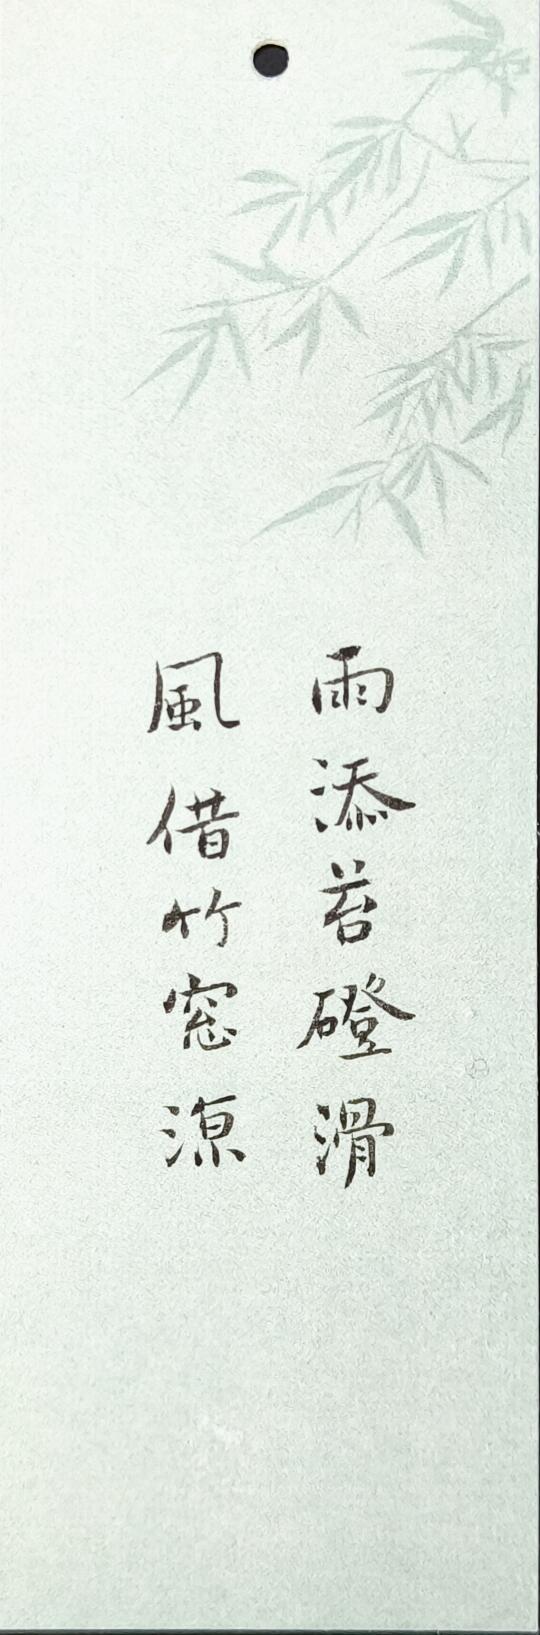 雨添苔磴滑
風借竹窓涼